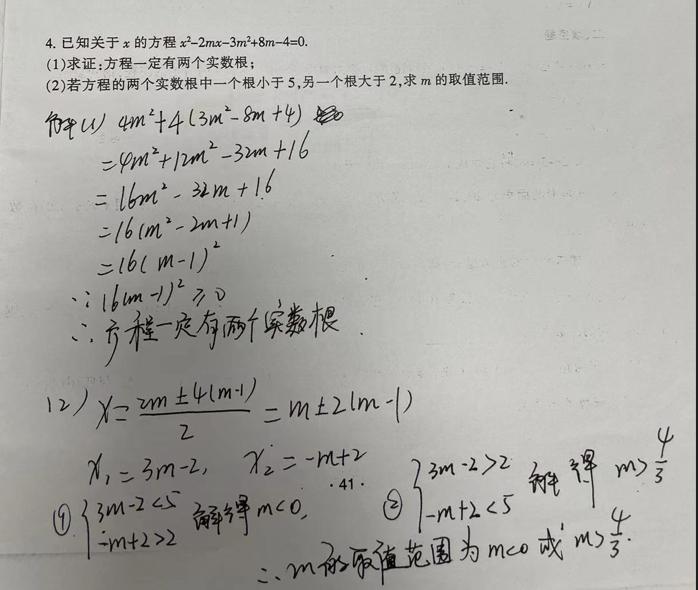 4. 已知关于 x 的方程 x²-2mx-3m²+8m-4=0.
(1)求证:方程一定有两个实数根;
(2)若方程的两个实数根中一个根小于 5,另一个根大于 2,求 m 的取值范围.
解(1) 4m²+4(3m²-8m+4)
=4m²+12m²-32m+16
=16m²-32m+16
=16(m²-2m+1)
=16(m-1)²
∵16(m-1)²≥0
∴方程一定有两个实数根.
(2) x=\frac{2m±4(m-1)}{2}=m±2(m-1)
x₁=3m-2, x₂=-m+2
· 41 ·
① {3m-2<5 -m+2>2 解得 m<0,
② {3m-2>2 -m+2<5 解得 m>\frac{4}{3}
∴m的取值范围为m<0或m>\frac{4}{3}.